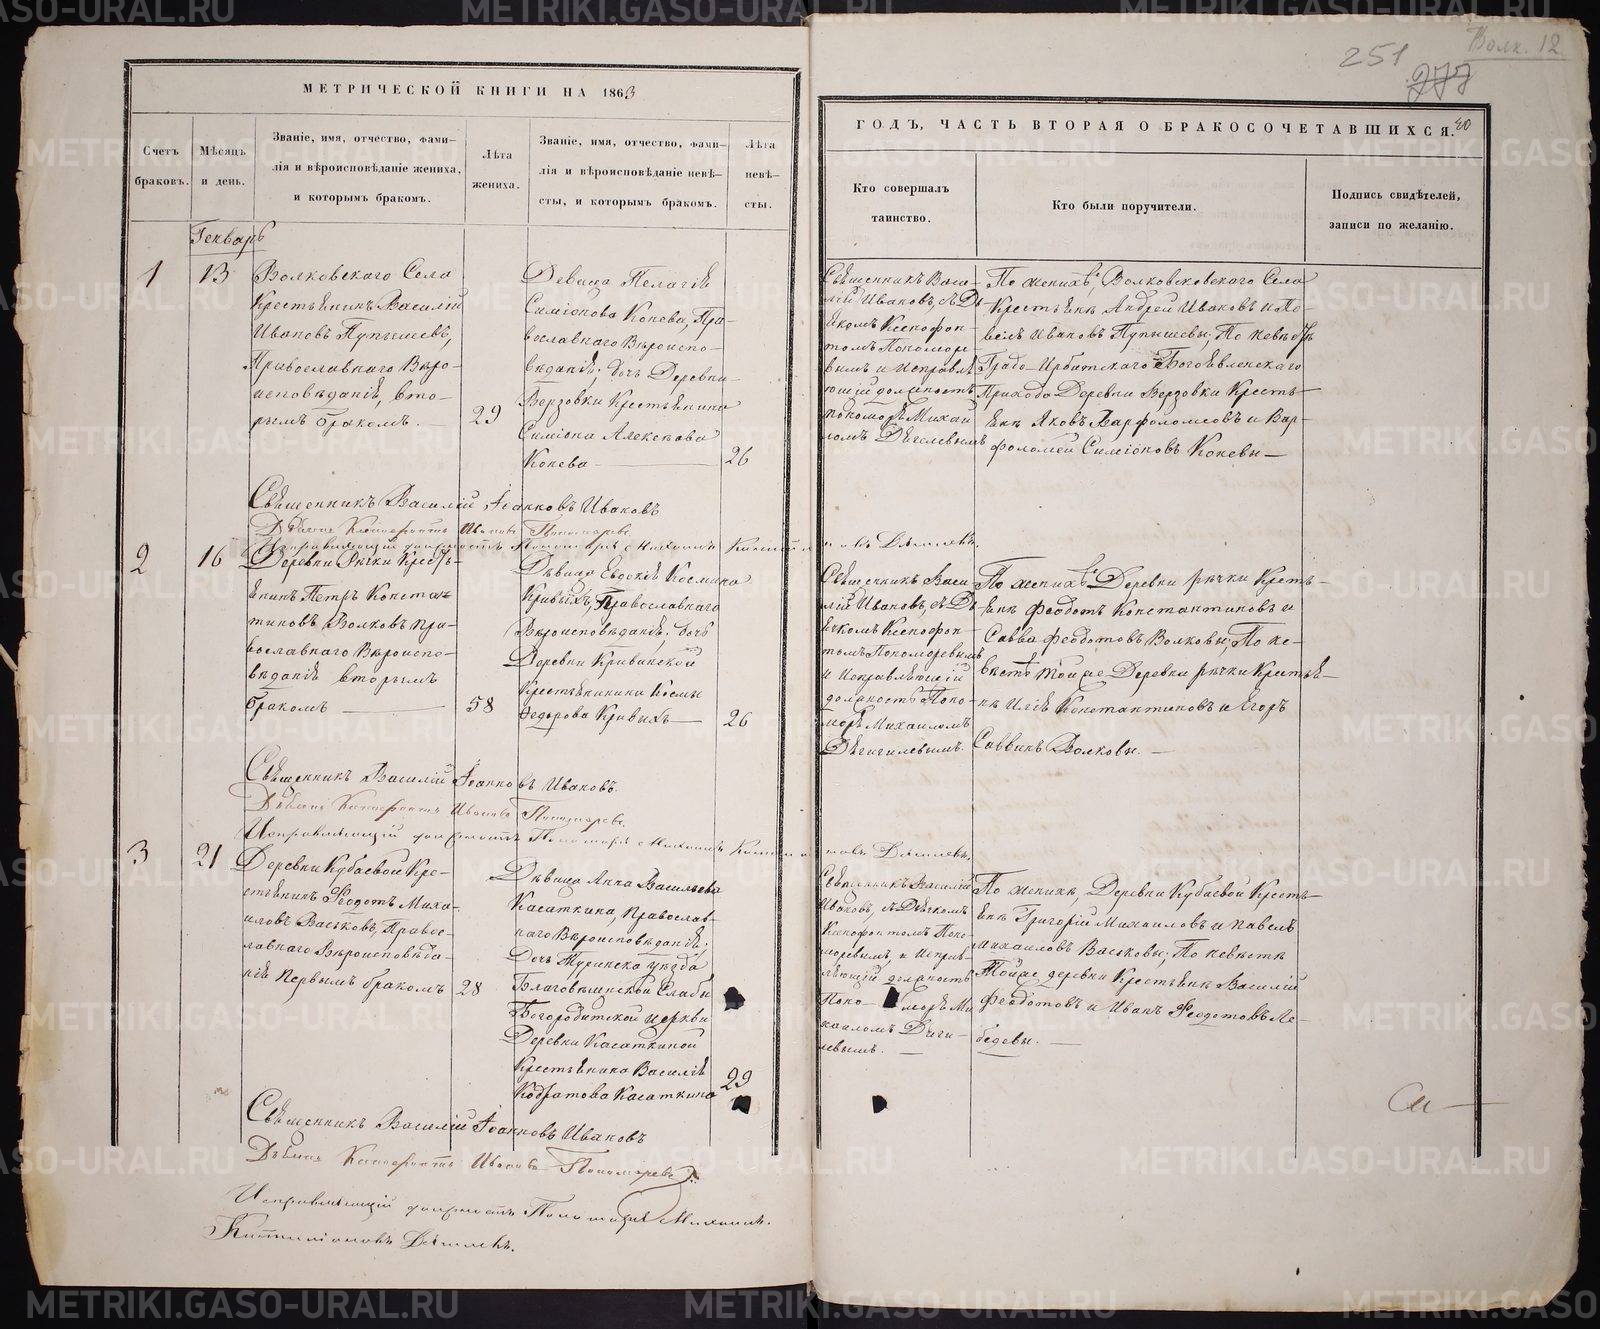 Волк. 12
251
277
МЕТРИЧЕСКОЙ КНИГИ НА 1863
Счетъ браковъ.
Мѣсяцъ и день.
Званіе, имя, отчество, фами-
лія и вѣроисповѣданіе жениха,
и которымъ бракомъ.
Лѣта
жениха.
Званіе, имя, отчество, фами-
лія и вѣроисповѣданіе невѣ-
сты, и которымъ бракомъ.
Лѣта
невѣ-
сты.
Генварь
1
13
Волковскаго Села
Крестьянинъ Василій
Ивановъ Пупышевъ,
Православнаго Вѣро-
исповѣданія, вто-
рымъ бракомъ.
29
Девица Пелагія
Симіонова Конева, Пра-
вославнаго Вѣроиспо-
вѣданія; дочь Деревни
Верзовки Крестьянина
Симіона Алексѣева
Конева
26
Священникъ Василій Іоанновъ Ивановъ
Дьячекъ Ксенофонтъ Ивановъ Пономаревъ
Исправляющій должность Пономаря Михаилъ
2
16
Деревни Рѣчки Кресть-
янинъ Петръ Конста-
тиновъ Волковъ Пра-
вославнаго Вѣроиспо-
вѣданія вторымъ
бракомъ
58
Дѣвица Евдокія Космина
Кривыхъ, Православнаго
Вѣроисповѣданія, дочь
Деревни Кривинской
Крестьянина Космы
Федорова Кривыхъ
26
Священникъ Василій Іоанновъ Ивановъ.
Дьячекъ Ксенофонтъ Ивановъ Пономаревъ.
Исправляющій должность Пономаря Михаилъ
3
21
Деревни Кубаевой Кре-
стьянинъ Ѳеодотъ Миха-
иловъ Васьковъ, Правос-
лавнаго Вѣроисповѣда-
нія первымъ бракомъ
28
Дѣвица Анна Васильева
Касаткина, Православ-
наго Вѣроисповѣданія;
Дочь Туринска уѣзда
Благовѣщинской Слабы
Богородитской церкви
Деревни Касаткиной
Крестьянина Василія
Кодратова Касаткина
29
Священникъ Василій Іоанновъ Ивановъ
Дьячекъ Ксенофонтъ Ивановъ Пономаревъ
Исправляющій должность Пономаря Михаилъ
ГОДЪ, ЧАСТЬ ВТОРАЯ О БРАКОСОЧЕТАВШИХСЯ.
Кто совершалъ
таинство.
Кто были поручители.
Подпись свидѣтелей,
записи по желанію.
Священникъ Васи-
лій Ивановъ, съ Дь-
ячкомъ Ксенофон-
томъ Пономоре-
вымъ и исправля
ющій должность
пономоря Михаи
ломъ
По женихѣ, Волковсковскаго Села
Крестьяне Андрей Ивановъ и Па-
велъ Ивановъ Пупышевы; По невѣстѣ
Градо-Ирбитскаго Богоявленскаго
Прихода Деревни Верзовки Кресть-
яне Яковъ Варфоломеовъ и Вар-
фоломей Симіоновъ Коневы
Священникъ Васи
лій Ивановъ, съ Дь
ячкомъ Ксенофон-
томъ Пономоревымъ
и Исправляющій
должность Поно-
моря Михаиломъ
По женихѣ Деревни рѣчки Кресть-
яне Феодотъ Константиновъ и
Савва Феодотовъ Волковы; По не-
вѣстѣ Тойже Деревни рѣчки Кретья-
не Илія Константиновъ и Егоръ
Саввинъ Волковы.
Священникъ Василій
Ивановъ, съ Дьячкомъ
Ксенофонтомъ Поно-
моревымъ, и исправ-
ляющій должность
Поно- моря Ми
хаиломъ
По женихѣ, Деревни Кубаевой Кресть-
яне Григорій Михаиловъ и павелъ
Михаиловъ Васьковы; По невѣстѣ
Тойже деревни Крестьяне Василій
Феодотовъ и Иванъ Ѳеодотовъ Ле-
бедевы.
METRIKI.GASO-URAL.RU